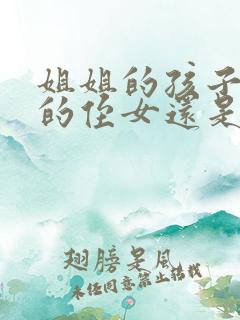 姐姐的孩子
的侄女还是
翅膀是风
未经同意禁止转载